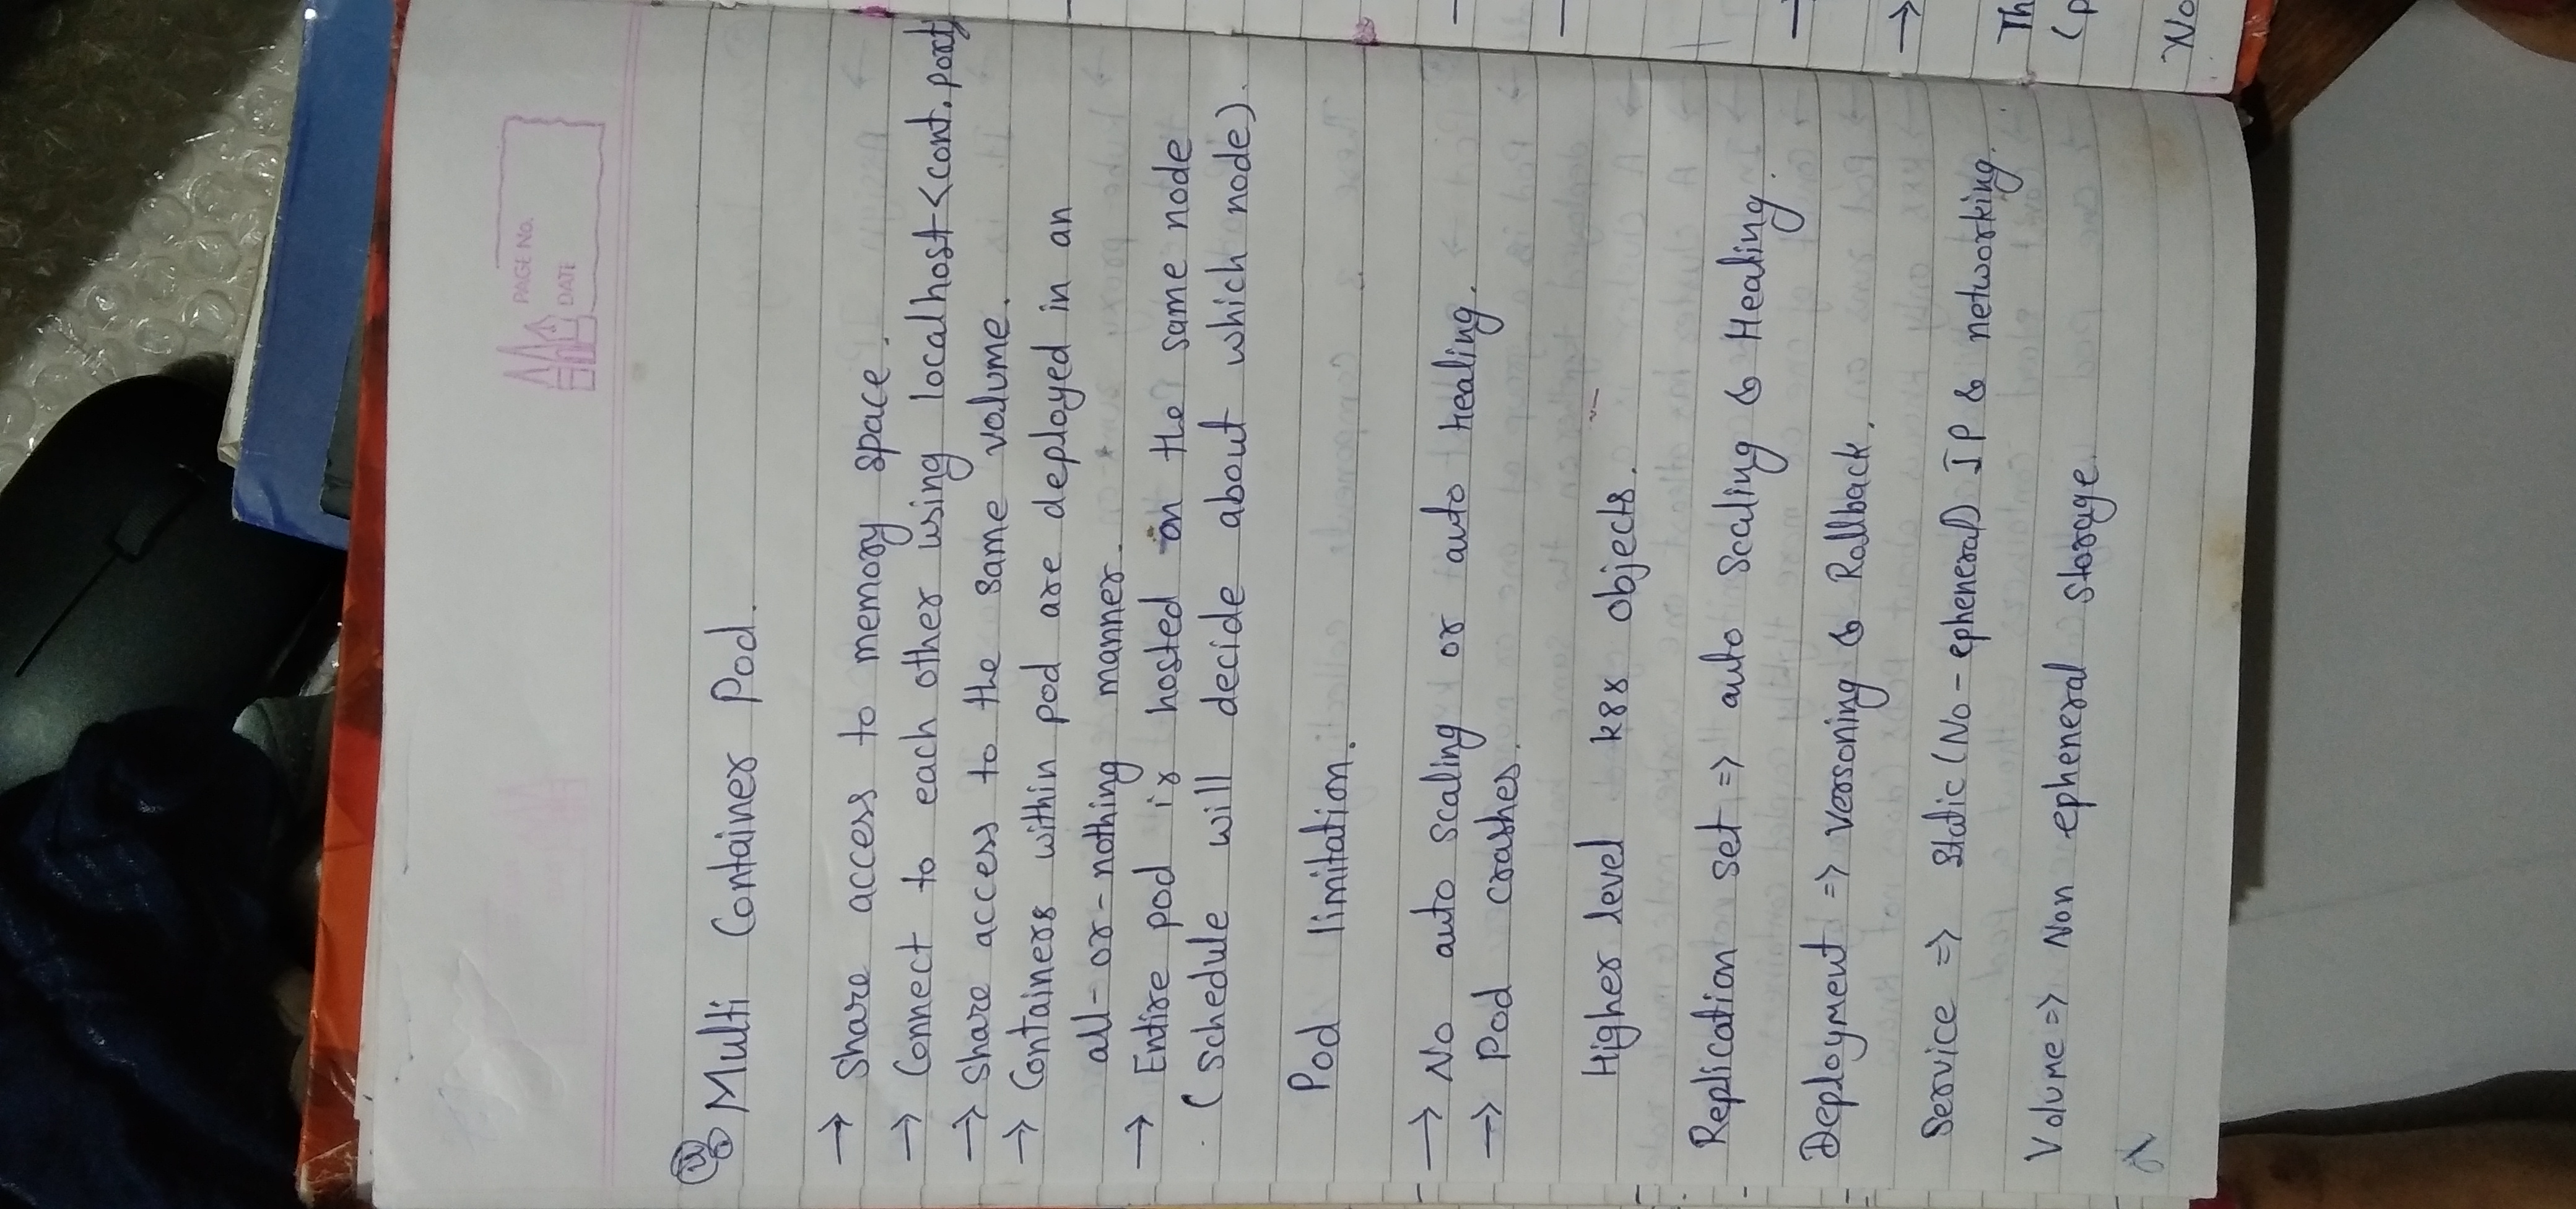 PAGE No.
DATE
Multi Container Pod.
→ Share access to memory space.
→ Connect to each other using localhost <cont. port>
→ Share access to the same volume.
→ Containers within pod are deployed in an
all-or-nothing manner.
→ Entire pod is hosted on the same node
(schedule will decide about which node).
Pod limitation.
→ No auto scaling or auto healing.
→ Pod crashes.
Higher level k8s objects.
Replication set => auto Scaling & Healing.
Deployment => Versoning & Rollback.
Service => Static (No-epheneral) IP & networking.
Volume => Non epheneral storage.
Th
(p
No